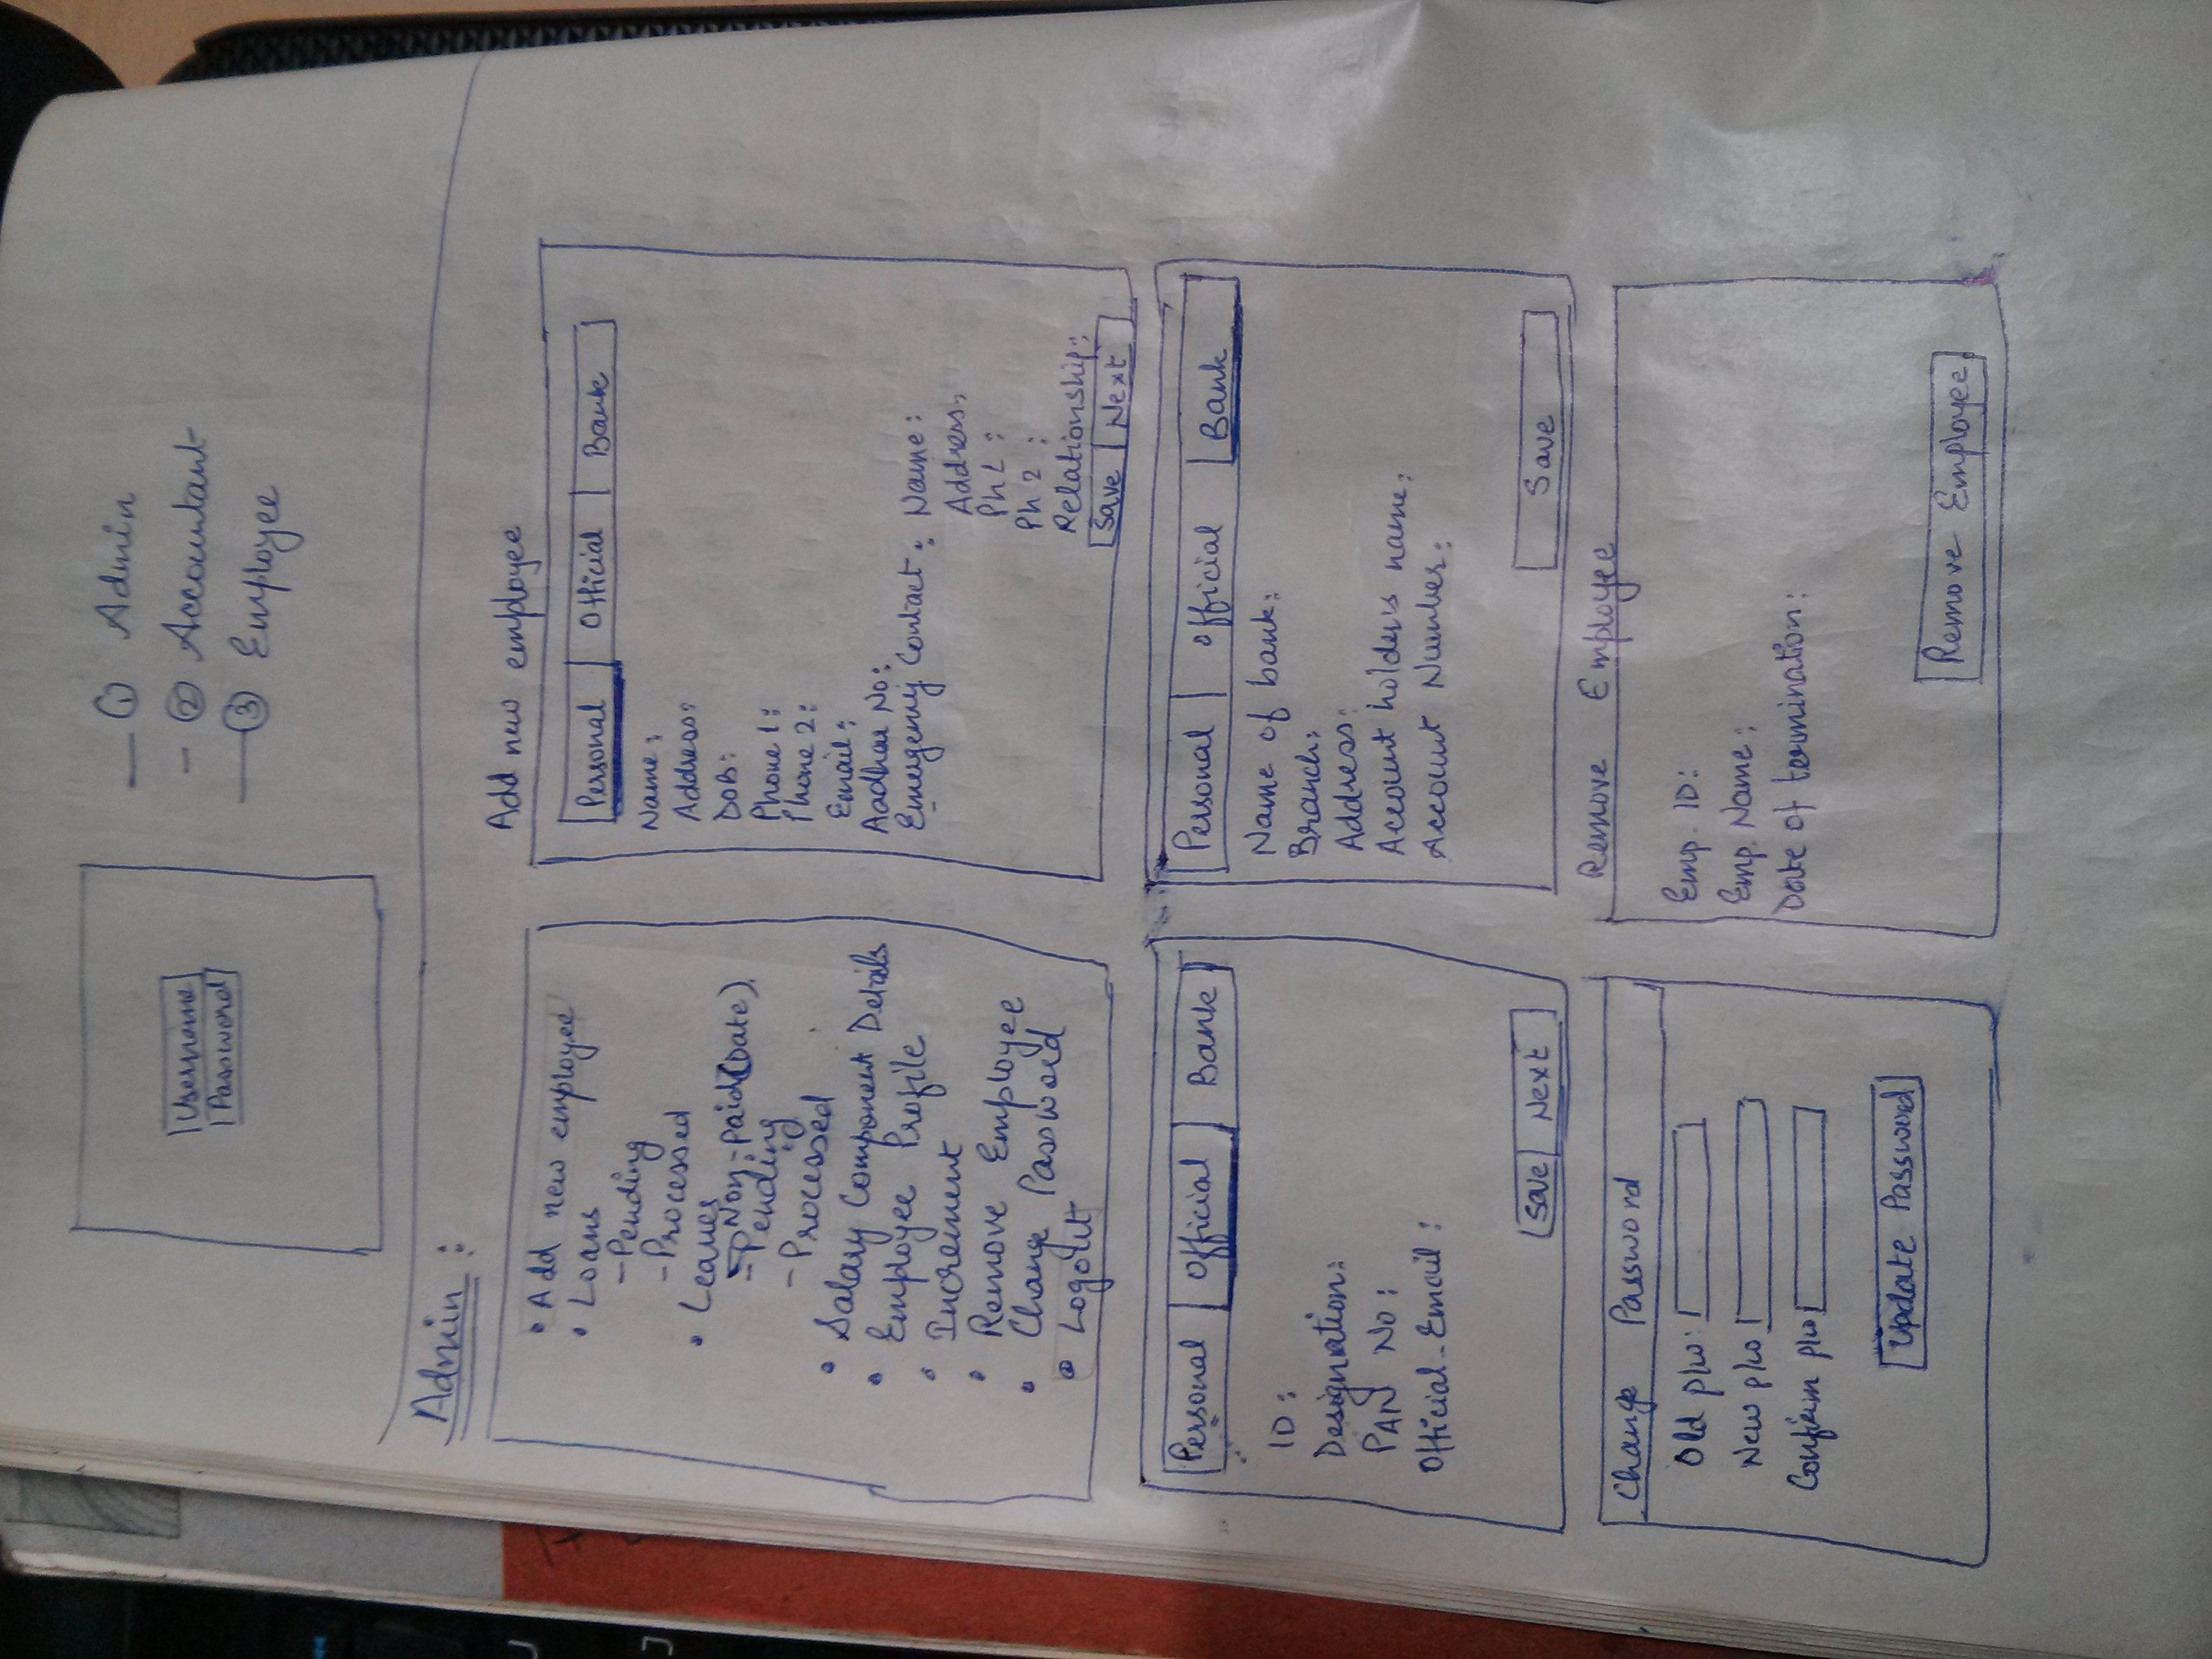 Username
Password
— ① Admin
- ② Accountant
— ③ Employee
Admin :
• Add new employee
• Loans
- Pending
- Processed
• Leaves
- Non-Paid (Date)
- Pending
- Processed
• Salary Component Details
• Employee Profile
• Increment
• Remove Employee
• Change Password
• Logout
Add new employee
Personal Official Bank
Name:
Address:
DOB:
Phone 1:
Phone 2:
Email:
Aadhar No:
Emergency Contact: Name:
Address:
Ph 1:
Ph 2:
Relationship:
Save Next
Personal Official Bank
ID:
Designation:
PAN No:
Official-Email:
Save Next
Personal Official Bank
Name of bank:
Branch:
Address:
Account holders name:
Account Number:
Save
Change Password
Old p/w:
New p/w
Confirm p/w
Update Password
Remove Employee
Emp. ID:
Emp. Name:
Date of termination:
Remove Employee